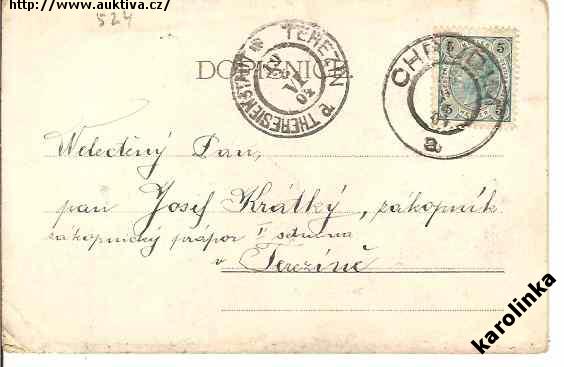 http://www.auktiva.cz/
524
TEREZÍN
THERESIENSTADT
VI
01
DOPISNICE.
CHRUDIM
5 5
5 5
a
Velectěný Pan,
pan Josef Krátký, zákopník
zákopnický prápor I setnina
v Terezíně
karolinka